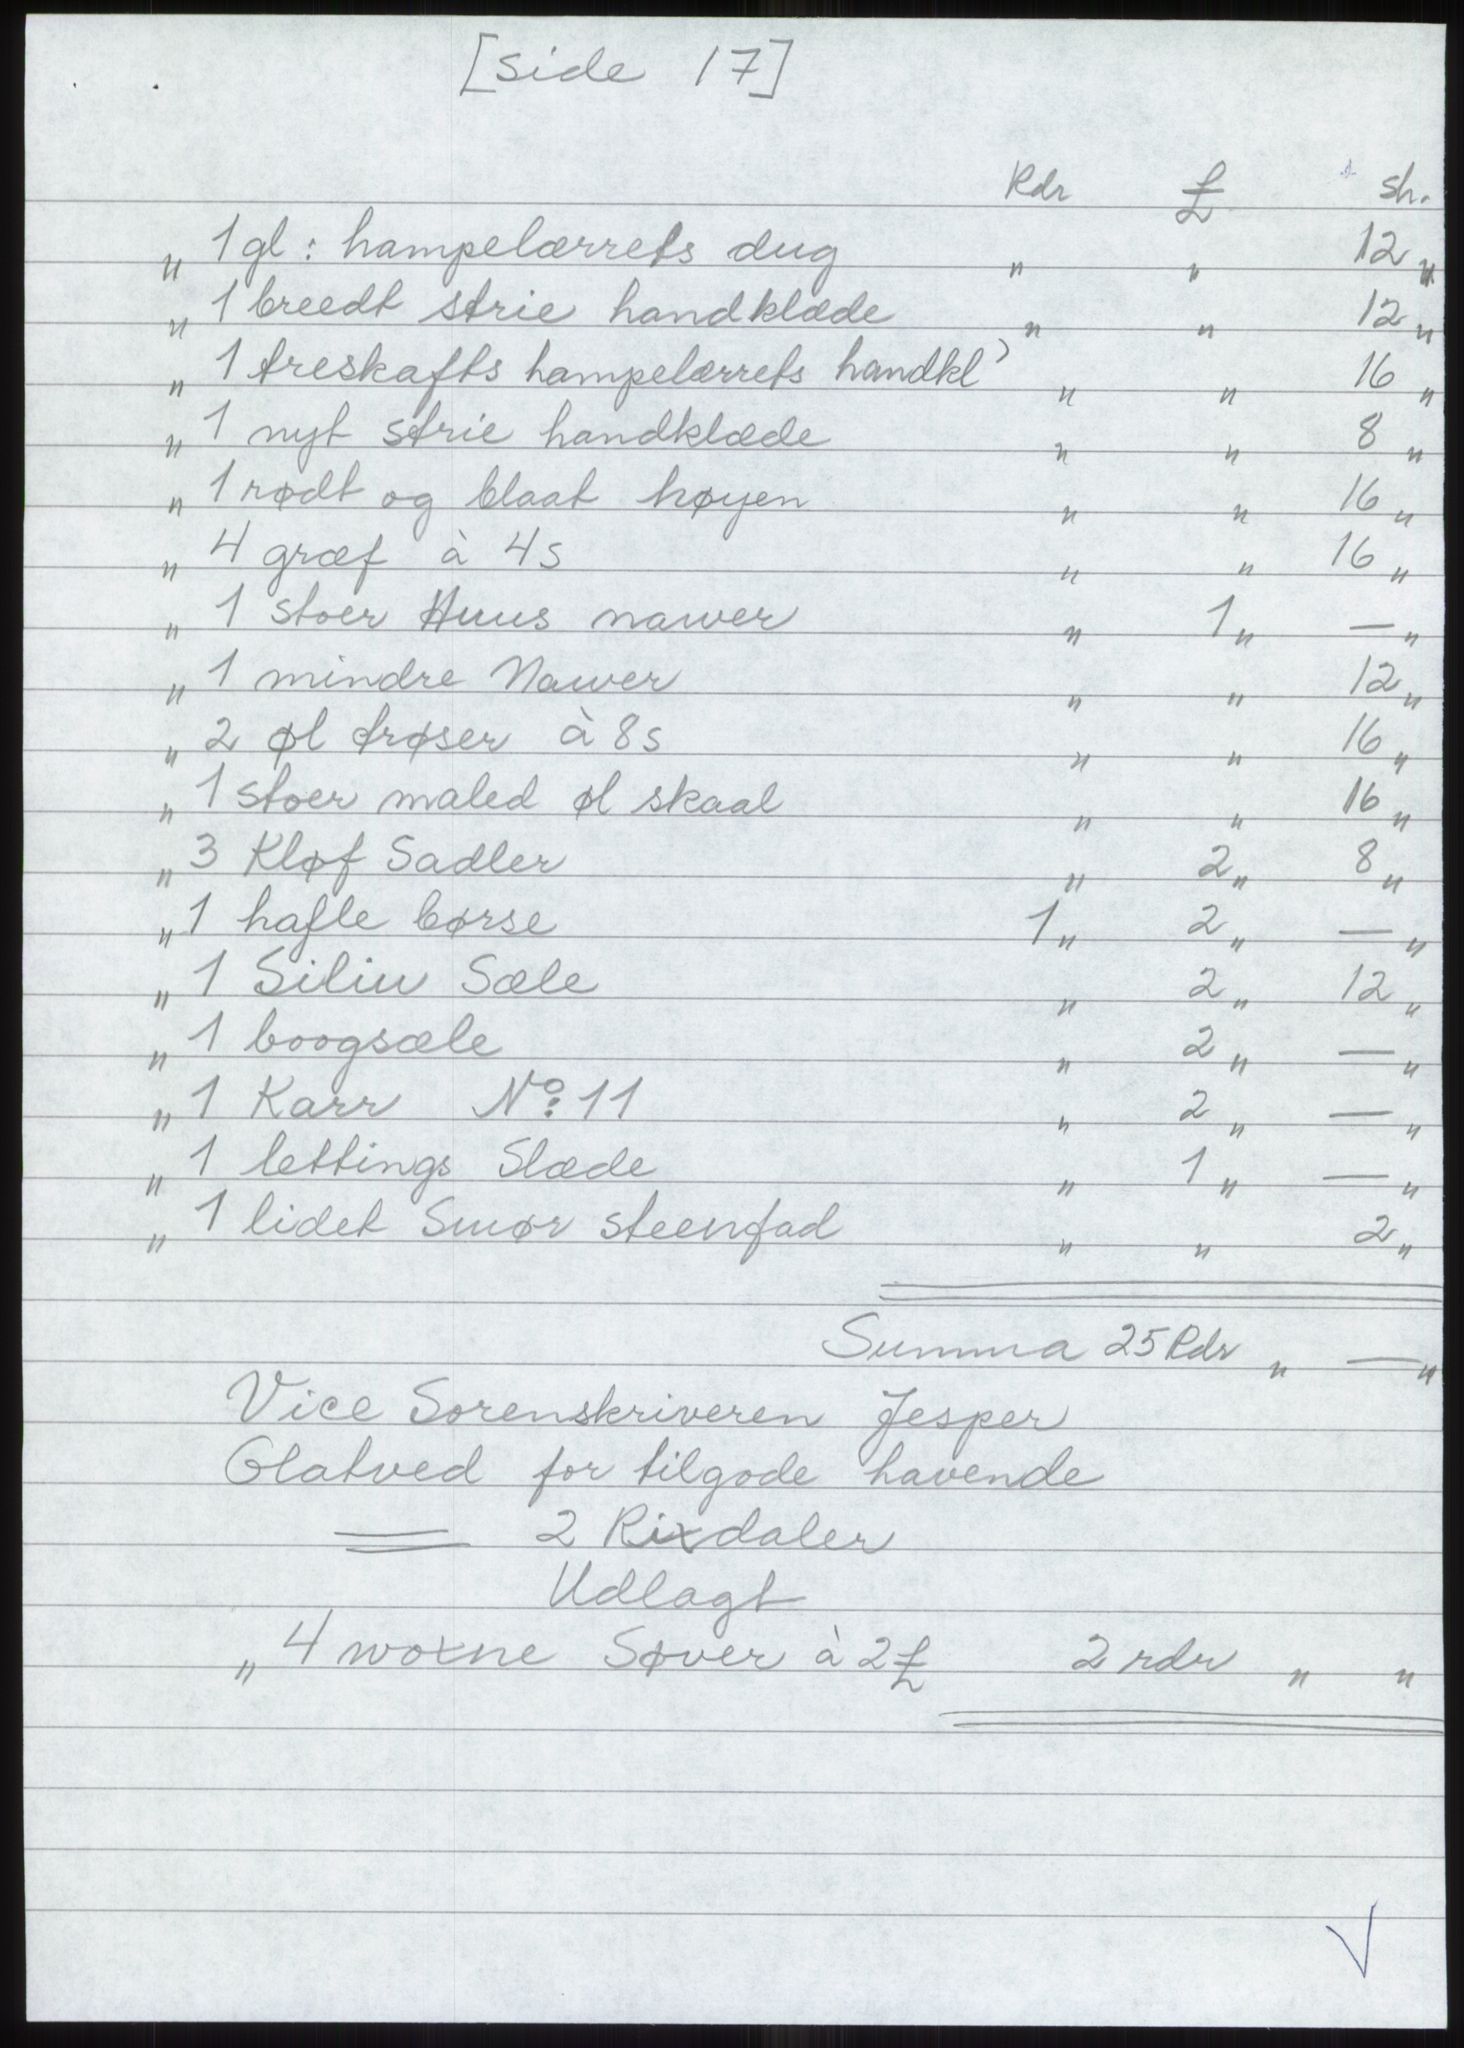 [side 17]
Rdr £ sh.
„ 1 gl: hampelærrets dug „ „ 12 „
„ 1 breedt strie handklæde „ „ 12 „
„ 1 treskafts hampelærrets handkl' „ „ 16 „
„ 1 nyt strie handklæde „ „ 8 „
„ 1 rødt og blaat høyen „ „ 16 „
„ 4 græf à 4s „ „ 16 „
„ 1 stoer Huus nawer „ 1 „ — „
„ 1 mindre Nawer „ „ 12 „
„ 2 øl trøser à 8s „ „ 16 „
„ 1 stoer maled øl skaal „ „ 16 „
„ 3 Kløf Sadler „ 2 „ 8 „
„ 1 hafle børse 1 „ 2 „ — „
„ 1 Siliu Sæle „ 2 „ 12 „
„ 1 boogsæle „ 2 „ — „
„ 1 Karr No: 11 „ 2 „ — „
„ 1 lettings Slæde „ 1 „ — „
„ 1 lidet Smør steenfad „ „ 2 „
Summa 25 Rdr „ — „
Vice Sorenskriveren Jesper
Glatved for tilgode havende
2 Rixdaler
Udlagt
„ 4 woxne Søver à 2 £ 2 rdr „ „